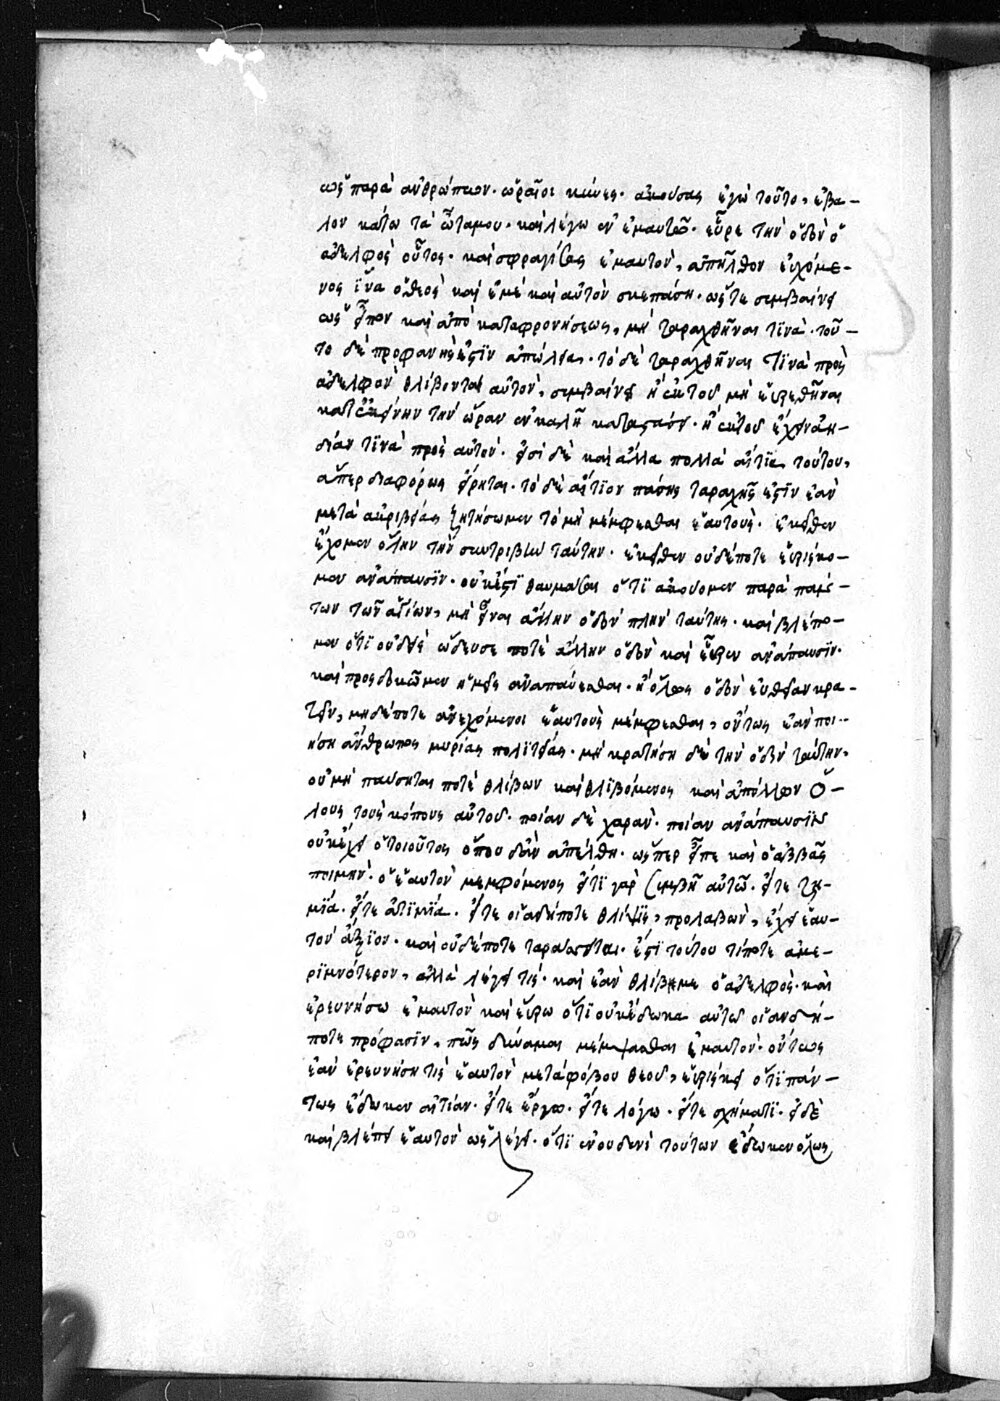 ὡς παρὰ ἀνθρώπων. ὡραῖοι κύνες. ἀκούσας ἐγὼ τοῦτο, ἔβα-
λον κάτω τὰ ὦτα μου. καὶ λέγω ἐν ἐμαυτῷ. εὗρε τὴν ὁδὸν ὁ
ἀδελφὸς οὗτος. καὶ σφραγίσας ἐμαυτὸν, ἀπῆλθον εὐχόμε-
νος ἵνα ὁ θεὸς καὶ ἐμὲ καὶ αὐτὸν σκεπάσῃ. ὥστε συμβαίνει
ὡς εἶπον καὶ ἀπὸ καταφρονήσεως, μὴ ταραχθῆναι τινὰ. τοῦ-
το δὲ προφανής ἐστιν ἀπώλεια. τὸ δὲ ταραχθῆναι τινὰ πρὸς
ἀδελφὸν θλίβοντα αὐτὸν, συμβαίνει ἢ ἐκ τοῦ μὴ εὑρεθῆναι
κατ' ἐκείνην τὴν ὥραν ἐν καλῇ καταστάσει. ἢ ἐκ τοῦ ἔχειν ἀη-
δίαν τινὰ πρὸς αὐτόν. εἰσὶ δὲ καὶ ἄλλα πολλὰ αἴτια τούτου,
ἅπερ διαφόρως εἴρηται. τὸ δὲ αἴτιον πάσης ταραχῆς ἐστὶν ἐὰν
μετὰ ἀκριβείας ζητήσωμεν τὸ μὴ μέμφεσθαι ἑαυτούς. ἐκεῖθεν
ἔχομεν ὅλην τὴν συντριβὴν ταύτην. ἐκεῖθεν οὐδέποτε εὑρίσκο-
μεν ἀνάπαυσιν. οὐκ ἔστι θαυμάσαι ὅτι ἀκούομεν παρὰ πάν-
των τῶν ἁγίων, μὴ εἶναι ἄλλην ὁδὸν πλὴν ταύτης. καὶ βλέπο-
μεν ὅτι οὐδεὶς ὥδευσέ ποτε ἄλλην ὁδὸν καὶ εὗρεν ἀνάπαυσιν.
καὶ προσδοκῶμεν ἡμεῖς ἀναπαύεσθαι. ἢ ὅλως ὁδὸν εὐθεῖαν κρα-
τεῖν, μηδέποτε ἀνεχόμενοι ἑαυτοὺς μέμφεσθαι, οὕτως ἐὰν ποι-
ήσῃ ἄνθρωπος μυρίας πολιτείας. μὴ κρατήσῃ δὲ τὴν ὁδὸν ταύτην,
οὐ μὴ παύσηταί ποτε θλίβων καὶ θλιβόμενος καὶ ἀπόλλων ὅ-
λους τοὺς κόπους αὐτοῦ. ποίαν δὲ χαρὰν. ποίαν ἀνάπαυσιν
οὐκ ἔχει ὁ τοιοῦτος ὅπου δ' ἂν ἀπέλθῃ. ὥσπερ εἶπε καὶ ὁ ἀββᾶς
ποιμήν. ὁ ἑαυτὸν μεμφόμενος εἴ τι γὰρ συμβῇ αὐτῷ. εἴτε ζη-
μία. εἴτε ἀτιμία. εἴτε οἱαδήποτε θλίψις, προλαβὼν, ἔχει ἑαυ-
τὸν ἄξιον. καὶ οὐδέποτε ταράσσεται. ἔστι τούτου τίποτε ἀμε-
ριμνότερον, ἀλλὰ λέγει τις. καὶ ἐὰν θλίβῃ με ὁ ἀδελφὸς. καὶ
ἐρευνήσω ἐμαυτὸν καὶ εὕρω ὅτι οὐκ ἔδωκα αὐτῷ οἱανδή-
ποτε πρόφασιν, πῶς δύναμαι μέμψασθαι ἐμαυτόν. οὕτως
ἐὰν ἐρευνήσῃ τίς ἑαυτὸν μετὰ φόβου θεοῦ, εὑρίσκει ὅτι πάν-
τως ἔδωκεν αἰτίαν. εἴτε ἔργῳ. εἴτε λόγῳ. εἴτε σχήματι. εἰ δὲ
καὶ βλέπει ἑαυτὸν ὡς λέγει. ὅτι ἐν οὐδενὶ τούτων ἔδωκεν ὅλως